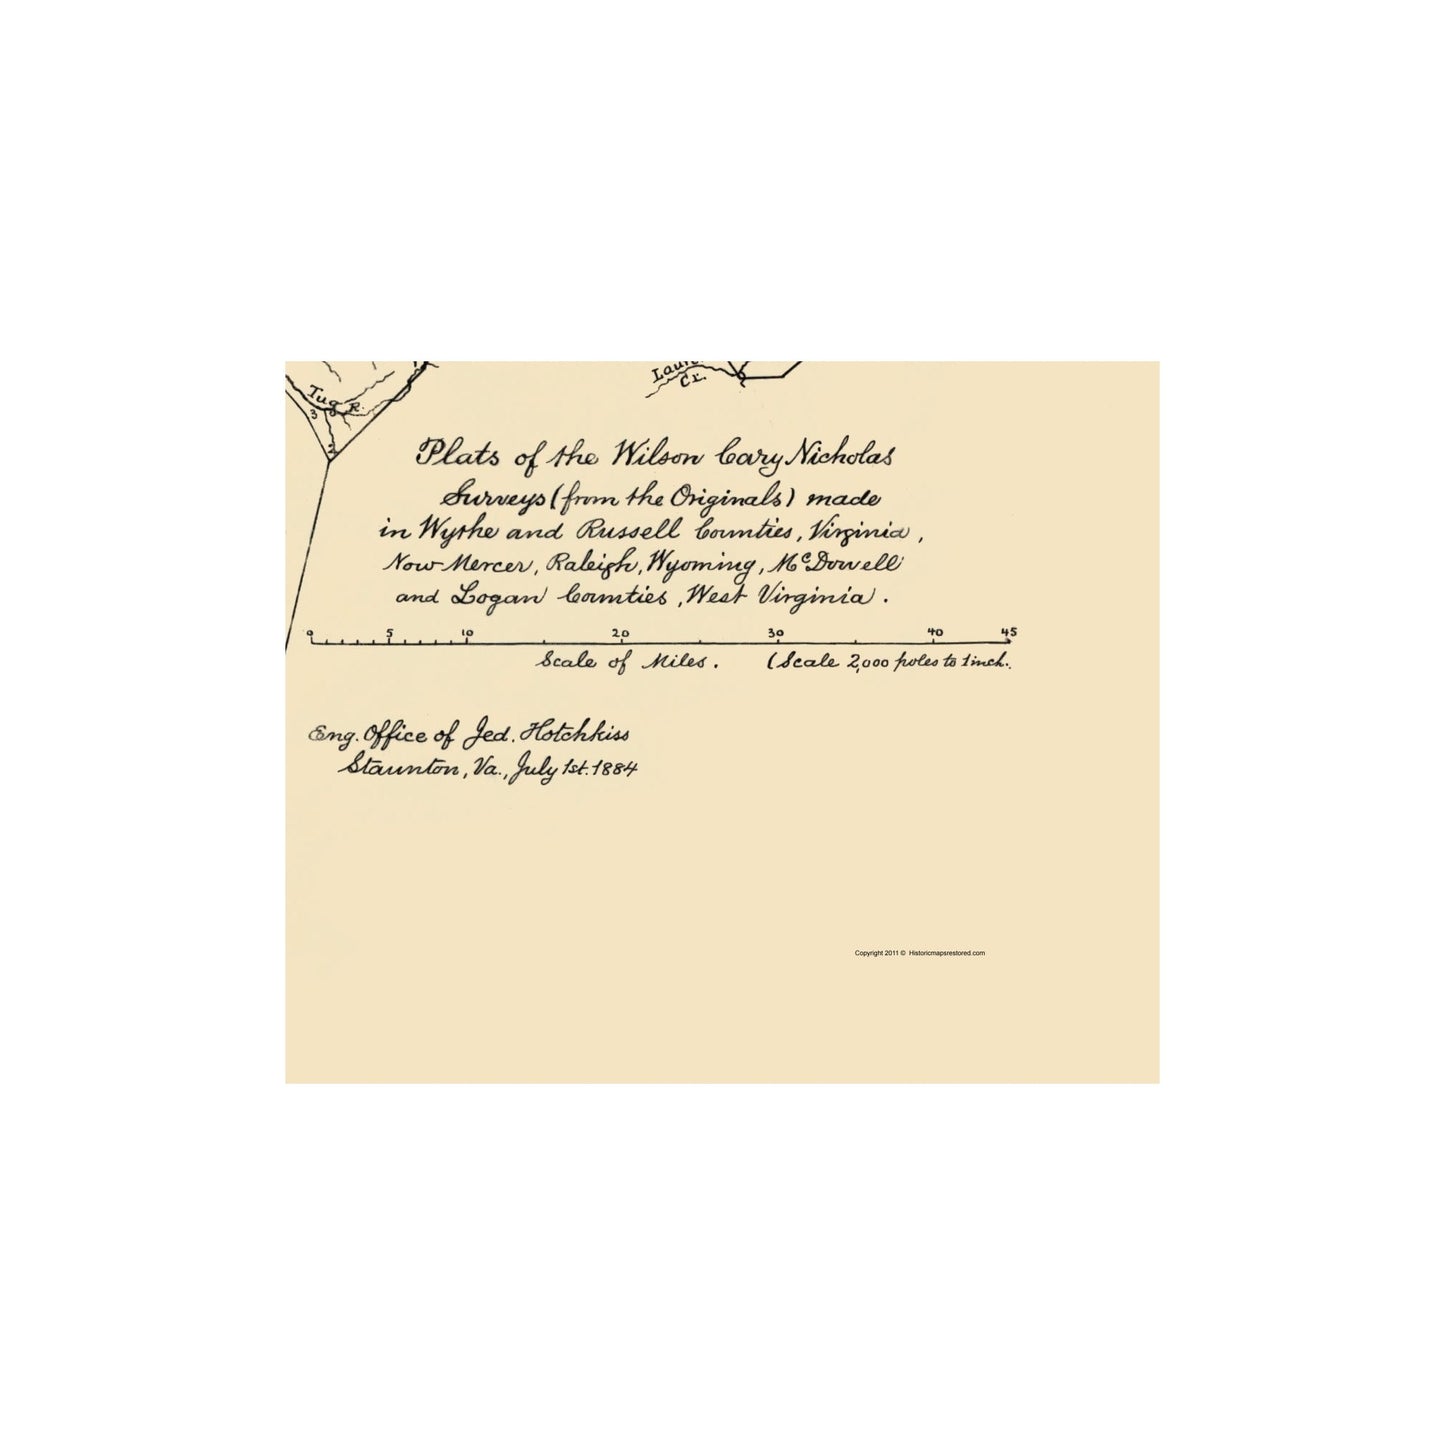 Laur
Cr.
Tug R.
3
2
Plats of the Wilson Cary Nicholas
Surveys (from the Originals) made
in Wythe and Russell Counties, Virginia,
Now Mercer, Raleigh, Wyoming, McDowell
and Logan Counties, West Virginia.
0 5 10 20 30 40 45
Scale of Miles. (Scale 2,000 poles to 1 inch.
Eng. Office of Jed. Hotchkiss
Staunton, Va., July 1st. 1884
Copyright 2011 © Historicmapsrestored.com